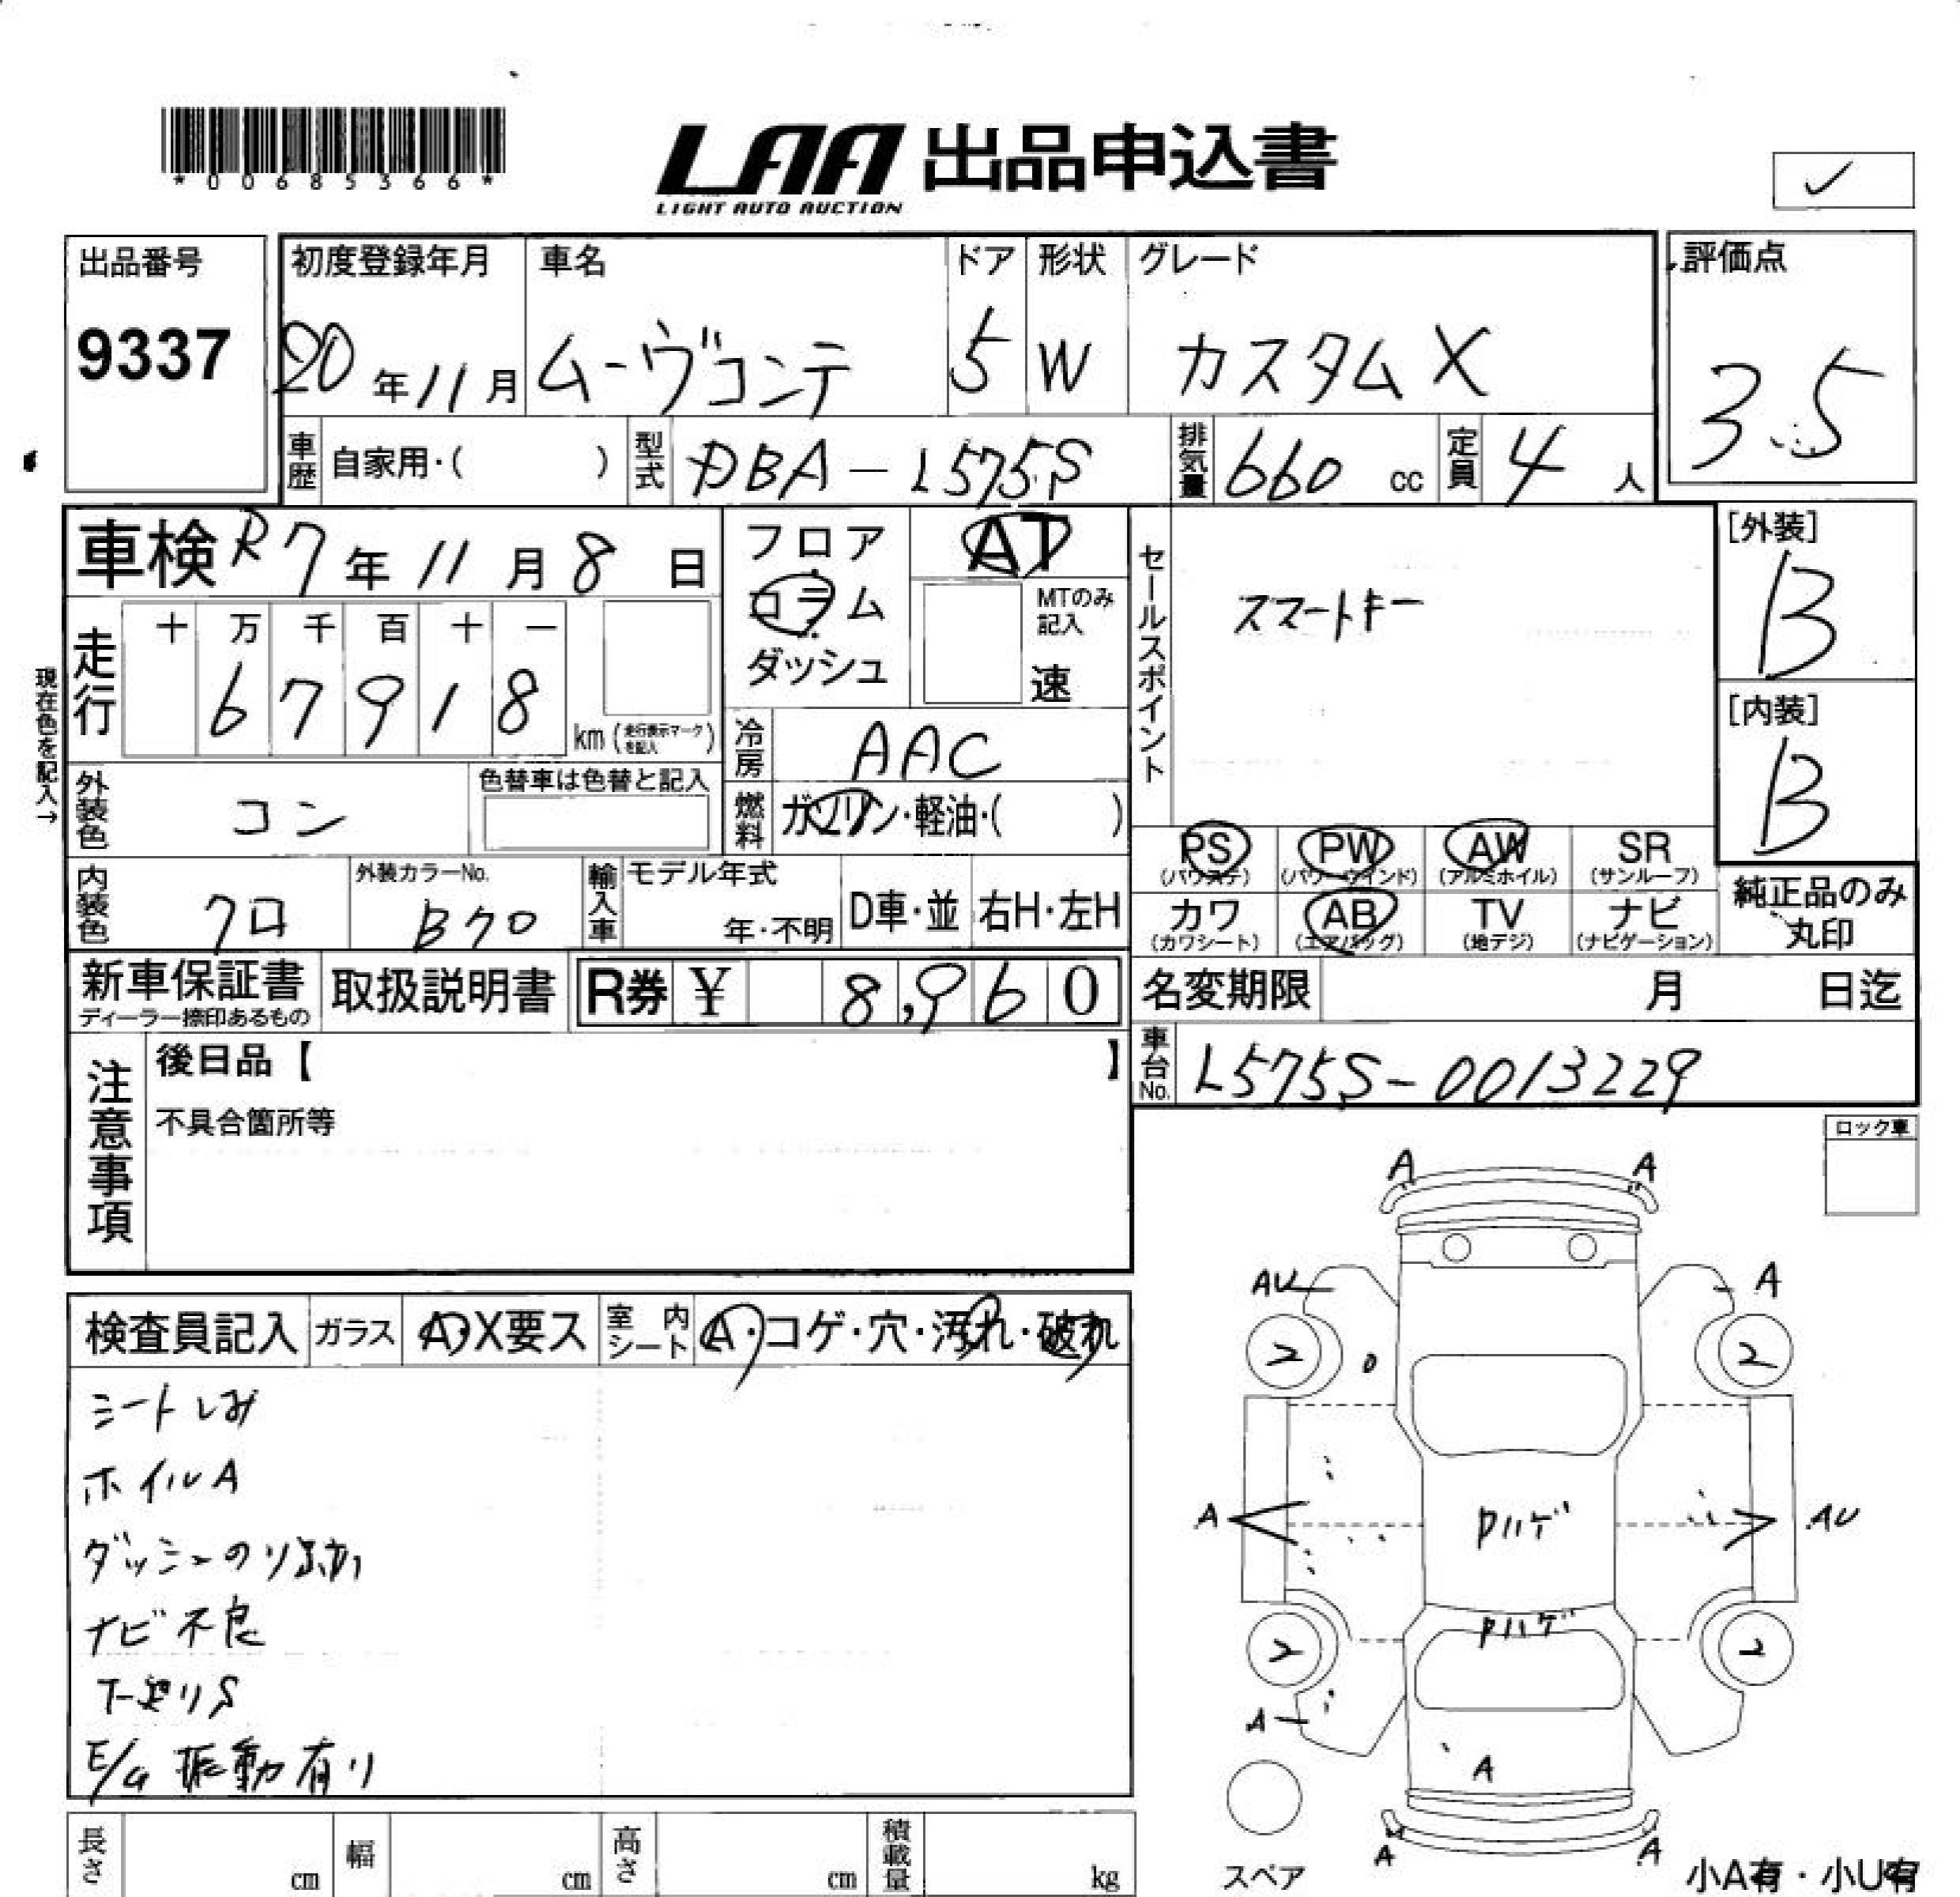 *00685366*
LAA 出品申込書
LIGHT AUTO AUCTION
✓
出品番号
9337
初度登録年月 20年11月
車名 ムーヴコンテ
ドア 5
形状 W
グレード カスタムX
評価点 3.5
車歴 自家用・( )
型式 DBA-L575S
排気量 660 cc
定員 4 人
車検 R7年11月8日
フロア
コラム
ダッシュ
AT
MTのみ記入
速
セールスポイント
スマートキー
[外装]
B
[内装]
B
現在色を記入→
走行 十万千百十一
67918 km (走行表示マークを記入)
冷房 AAC
外装色 コン
色替車は色替と記入
燃料 ガソリン・軽油・( )
内装色 クロ
外装カラーNo. B70
輸入車 モデル年式 年・不明 D車・並 右H・左H
PS (パワステ) PW (パワーウインド) AW (アルミホイル) SR (サンルーフ)
カワ (カワシート) AB (エアバッグ) TV (地デジ) ナビ (ナビゲーション)
純正品のみ丸印
新車保証書
ディーラー捺印あるもの
取扱説明書
R券 ¥ 8,960
名変期限 月 日迄
車台No. L575S-0013229
注意事項
後日品【 】
不具合箇所等
ロック車
検査員記入 ガラス A・X要ス 室内シート A・コゲ・穴・汚れ・破れ
シートしみ
ホイルA
ダッシュのり跡
ナビ不良
下廻りS
E/G 振動有り
A A
AU A
2 2
A AU
Pハゲ
Pハゲ
2 2
A
A
A A
スペア
小A有・小U有
長さ cm 幅 cm 高さ cm 積載量 kg